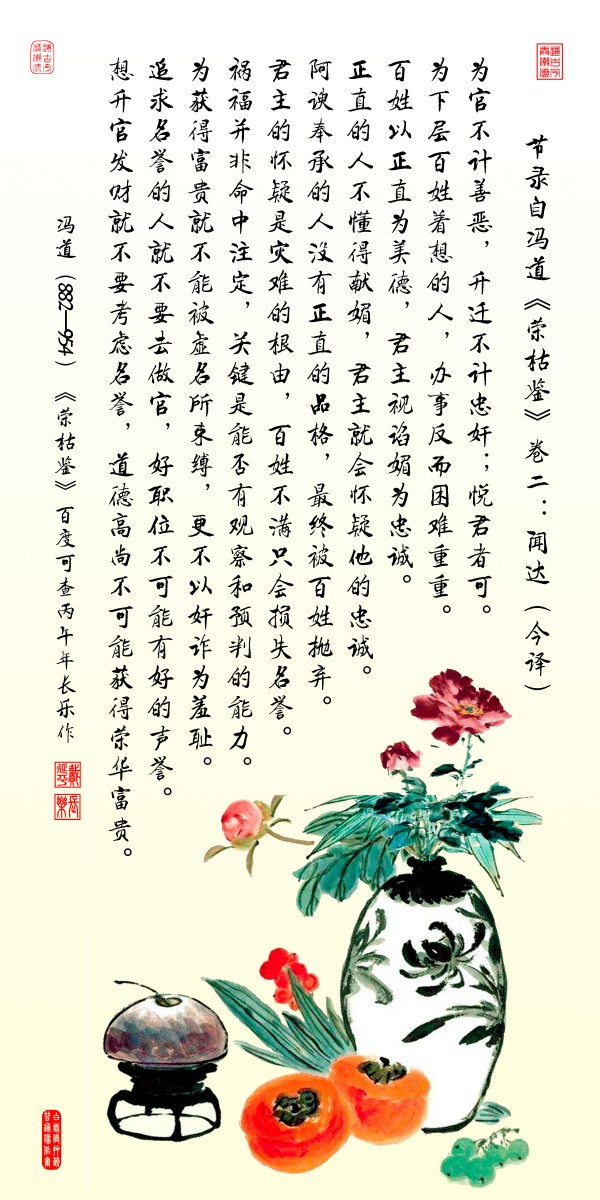 节录自冯道《荣枯鉴》卷二：闻达（今译）
为官不计善恶，升迁不计忠奸；悦君者可。
为下层百姓着想的人，办事反而困难重重。
百姓以正直为美德，君主视谄媚为忠诚。
正直的人不懂得献媚，君主就会怀疑他的忠诚。
阿谀奉承的人没有正直的品格，最终被百姓抛弃。
君主的怀疑是灾难的根由，百姓不满只会损失名誉。
祸福并非命中注定，关键是能否有观察和预判的能力。
为获得富贵就不能被虚名所束缚，更不以奸诈为羞耻。
追求名誉的人就不要去做官，好职位不可能有好的声誉。
想升官发财就不要考虑名誉，道德高尚不可能获得荣华富贵。
冯道（882—954）《荣枯鉴》百度可查丙午年长乐作